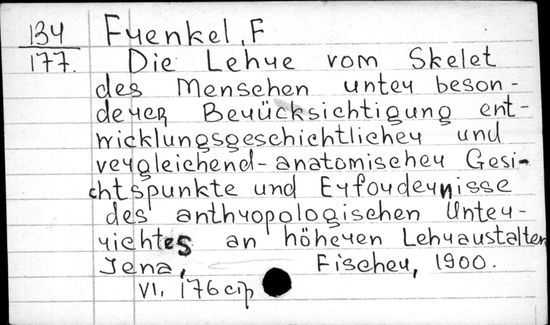 134
177.
Frenkel, F
Die Lehre vom Skelet
des Menschen unter beson-
derer Berücksichtigung ent-
wicklungsgeschichtlicher und
vergleichend-anatomischer Gesi-
chtspunkte und Erfordernisse
des anthropologischen Unter-
richtes an höheren Lehraustalten
Jena, Fischer, 1900.
VI, 176 стр